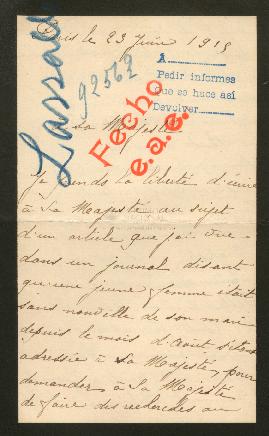 Paris le 23 Juin 1915
Á
Pedir informes
Que se hace así
Devolver
Lassalle
92562
Fecho
e.a.e.
Sa Majesté
Je prends la liberté d'écrire
à Sa Majesté au sujet
d'un article que j'ai vue
dans un journal disant
qu'une jeune femme était
sans nouvelle de son mari
depuis le mois d'Aout s'était
adressée à Sa Majesté, pour
demander à Sa Majesté
de faire des recherches au